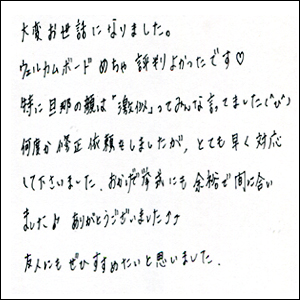 大変お世話になりました。
ウェルカムボードめちゃ評判よかったです♡
特に旦那の顔は「激似」ってみんな言ってました(^∪^)
何度か修正依頼をしましたが、とても早く対応
して下さいました、おかげで挙式にも余裕で間に合い
ました♪ ありがとうございました↑↑
友人にもぜひすすめたいと思いました.